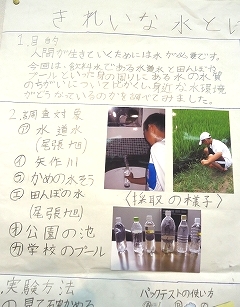 きれいな水とは
1.目的
人間が生きていくためには水が必要です。
今回は、飲料水である水道水と田んぼや
プールといった身の周りにある水の水質
のちがいについて比かくし、身近な水環境
がどうなっているのかを調べてみました。
2.調査対象
㋐水道水
(尾張旭)
㋑矢作川
㋒かめの水そう
㋓田んぼの水
(尾張旭)
㋔公園の池
㋕学校のプール
〈採取の様子〉
実験方法
パックテストの使い方
見て確かめる